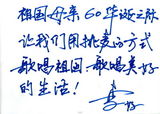 祖国母亲60华诞之际
让我们用挑麦的方式
歌唱祖国、歌唱美好
的生活！